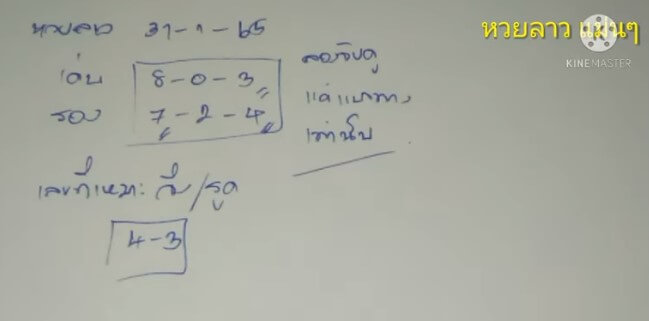 หวยลาว แม่นๆ
KINEMASTER
หวยลาว 31-1-65
เด่น 8-0-3
รอง 7-2-4
ลองจิบดู
แค่แนวทาง
เท่านั้น
เลขที่เหมาะ วิ่ง/รูด
4-3